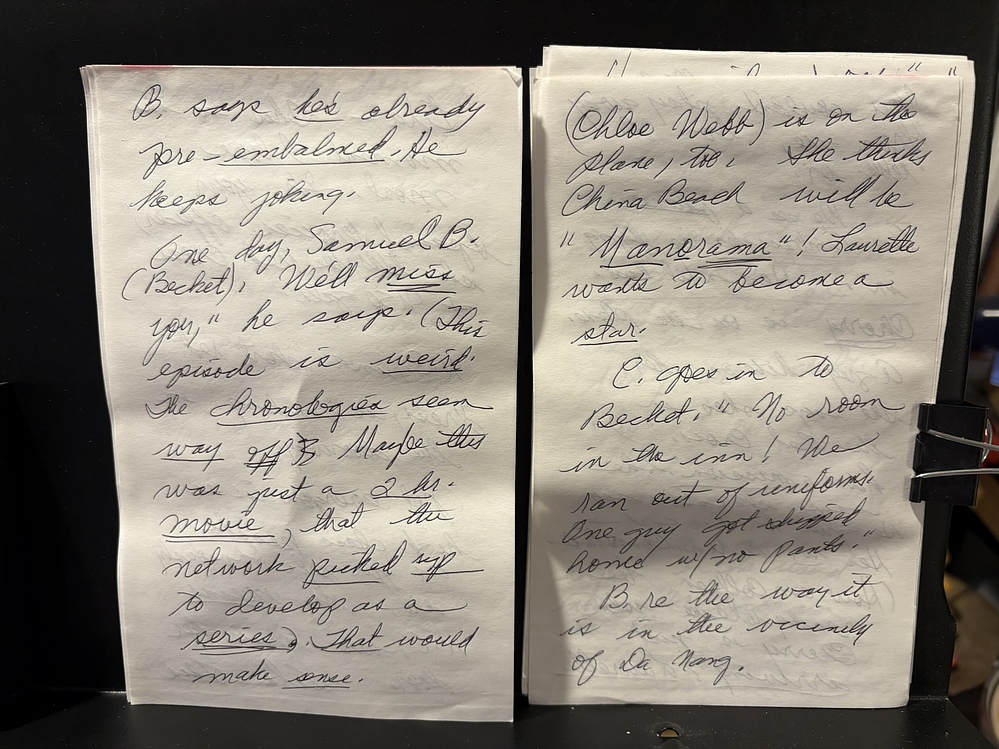 B. says he's already
pre-embalmed. He
keeps joking.
One day, Samuel B.
(Becket), We'll miss
you," he says. (This
episode is weird.
The chronologies seem
way off. Maybe this
was just a 2 hr.
movie, that the
network picked up
to develop as a
series). That would
make sense.
(Chloe Webb) is on the
plane, too. She thinks
China Beach will be
"Manorama"! Laurette
wants to become a
star.
C. goes in to
Becket. "No room
in the inn! We
ran out of uniforms.
One guy got shipped
home w/ no pants."
B. re the way it
is in the vicinity
of Da Nang.